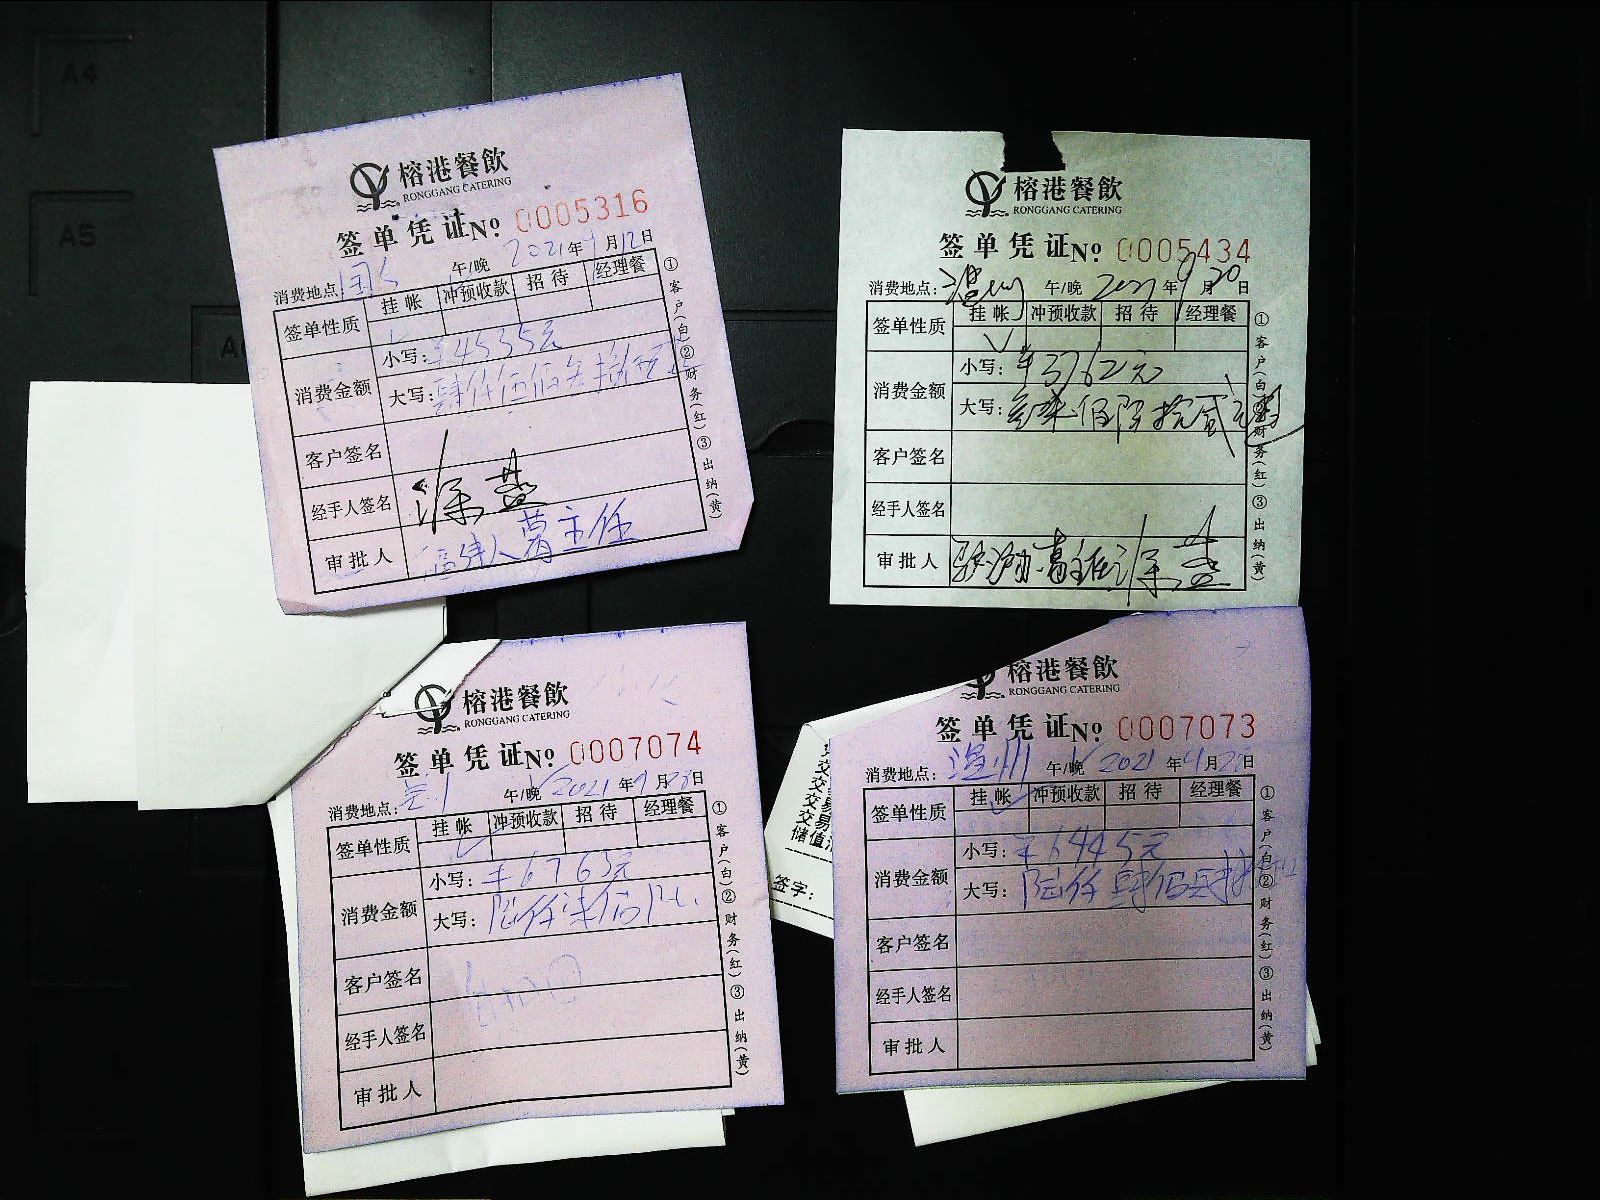 A4
A5
榕港餐飲
RONGGANG CATERING
签单凭证 № 0005316
2021年9月12日
消费地点: 午/晚
签单性质 挂帐 冲预收款 招待 经理餐
消费金额
小写: ¥4535元
大写: 肆仟伍佰叁拾伍
客户签名
经手人签名 涂燕
审批人 葛主任
①客户(白)②财务(红)③出纳(黄)
榕港餐飲
RONGGANG CATERING
签单凭证 № 0005434
消费地点: 温州 午/晚 2021年9月20日
签单性质 挂帐 冲预收款 招待 经理餐
√
消费金额
小写: ¥3762元
大写: 叁柒佰陆拾贰元
客户签名
经手人签名
审批人 葛主任 涂燕
①客户(白)②财务(红)③出纳(黄)
榕港餐飲
RONGGANG CATERING
签单凭证 № 0007074
消费地点: 午/晚 2021年9月28日
签单性质 挂帐 冲预收款 招待 经理餐
√
消费金额
小写: ¥6763元
大写: 陆仟柒佰
客户签名
经手人签名
审批人
①客户(白)②财务(红)③出纳(黄)
榕港餐飲
RONGGANG CATERING
签单凭证 № 0007073
消费地点: 温州 午/晚 2021年9月日
签单性质 挂帐 冲预收款 招待 经理餐
√
消费金额
小写: ¥6445元
大写: 陆仟肆佰肆拾
客户签名
经手人签名
审批人
①客户(白)②财务(红)③出纳(黄)
交易
交易
储值
签字: